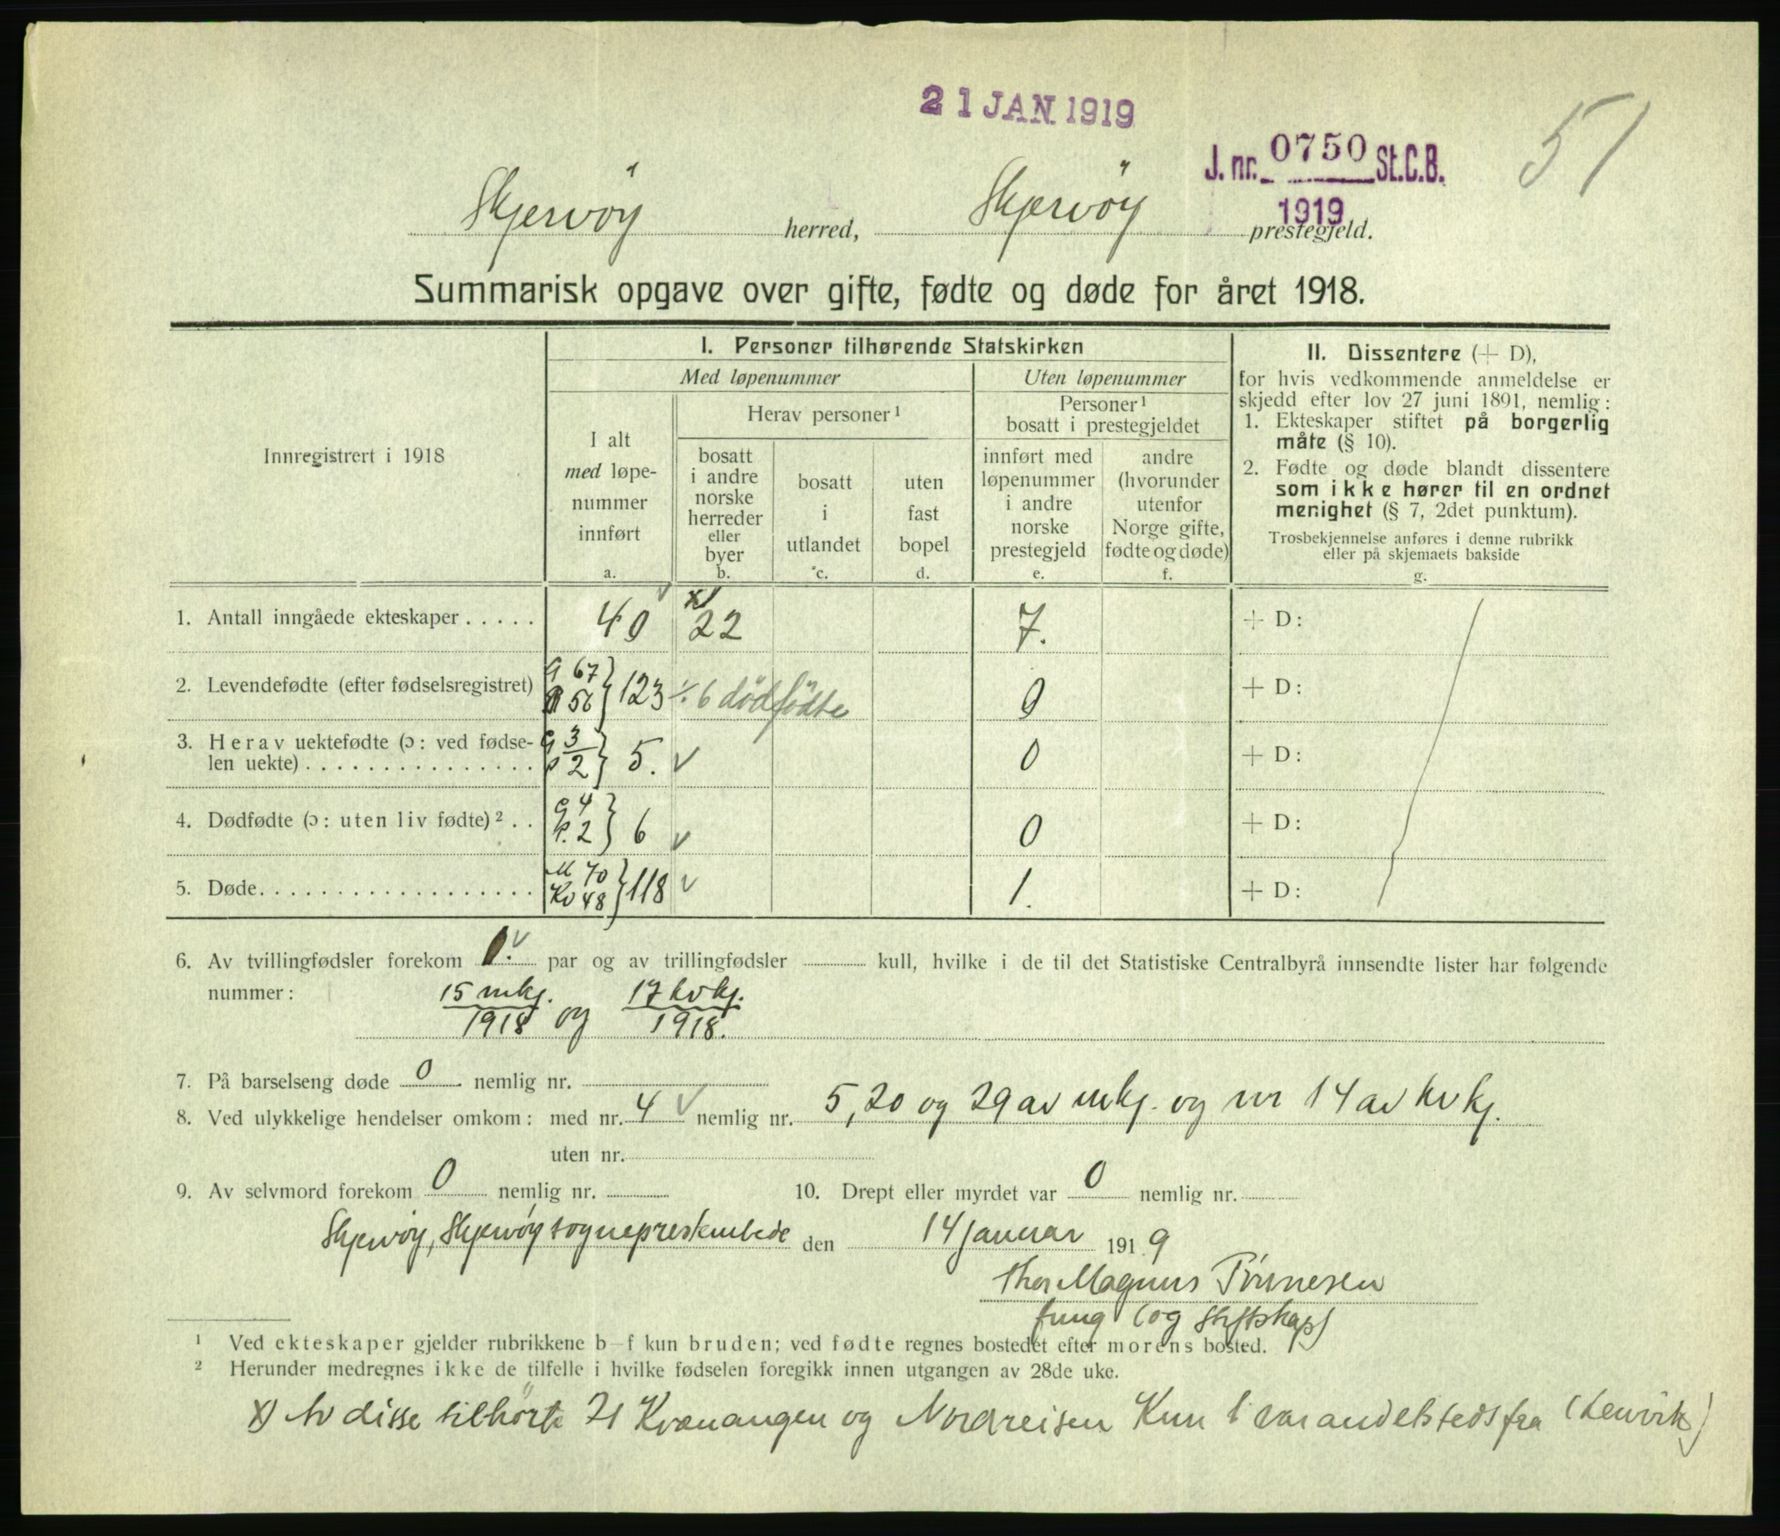 21 JAN 1919
J. nr. 0750 St.C.B.
1919
51
Skjervöy herred, Skjervöy prestegjeld.
Summarisk opgave over gifte, fødte og døde for året 1918.
Innregistrert i 1918
I. Personer tilhørende Statskirken
Med løpenummer
Uten løpenummer
I alt
med løpe-
nummer
innført
a.
Herav personer¹
bosatt
i andre
norske
herreder
eller
byer
b.
bosatt
i
utlandet
c.
uten
fast
bopel
d.
Personer¹
bosatt i prestegjeldet
innført med
løpenummer
i andre
norske
prestegjeld
e.
andre
(hvorunder
utenfor
Norge gifte,
fødte og døde)
f.
II. Dissentere (+ D),
for hvis vedkommende anmeldelse er
skjedd efter lov 27 juni 1891, nemlig:
1. Ekteskaper stiftet på borgerlig
måte (§ 10).
2. Fødte og døde blandt dissentere
som ikke hører til en ordnet
menighet (§ 7, 2det punktum).
Trosbekjennelse anføres i denne rubrikk
eller på skjemaets bakside
g.
1. Antall inngåede ekteskaper . . . . . 40 x) 22 7. + D:
2. Levendefødte (efter fødselsregistret) G 67 P 56 } 123 ÷ 6 dödfödte 0 + D:
3. Herav uektefødte (ɔ: ved fødse-
len uekte) . . . . . . . . . . . . . . . G 3 P 2 } 5. 0 + D:
4. Dødfødte (ɔ: uten liv fødte)² . . G 4 P. 2 } 6 0 + D:
5. Døde. . . . . . . . . . . . . . . . . . M 70 Kv 48 } 118 1. + D:
6. Av tvillingfødsler forekom 1. par og av trillingfødsler kull, hvilke i de til det Statistiske Centralbyrå innsendte lister har følgende
nummer: 15 mkj. og 17 kvkj.
1918 1918.
7. På barselseng døde 0 nemlig nr.
8. Ved ulykkelige hendelser omkom: med nr. 4 nemlig nr. 5, 20 og 29 av mkj. og nr 14 av kvkj.
uten nr.
9. Av selvmord forekom 0 nemlig nr. 10. Drept eller myrdet var 0 nemlig nr.
Skjervöy, Skjervöy sogneprestembede den 14 januar 1919
Thor Magnus Tönnesen
fung (og stiftskap)
¹ Ved ekteskaper gjelder rubrikkene b–f kun bruden; ved fødte regnes bostedet efter morens bosted.
² Herunder medregnes ikke de tilfelle i hvilke fødselen foregikk innen utgangen av 28de uke.
x) Av disse tilhörte 21 Kvænangen og Nordreisen Kun 1 var andetstedsfra (Lenvik)